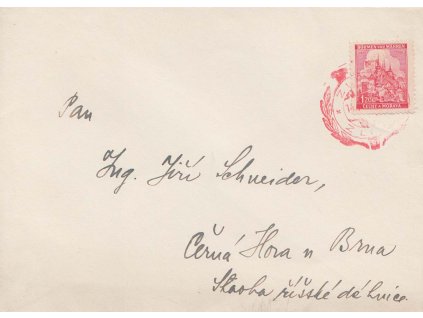 BÖHMEN UND MÄHREN
1.20
ČECHY A MORAVA
Pan
Ing. Jiří Schneider,
Černá Hora u Brna
Stavba říšské dálnice.